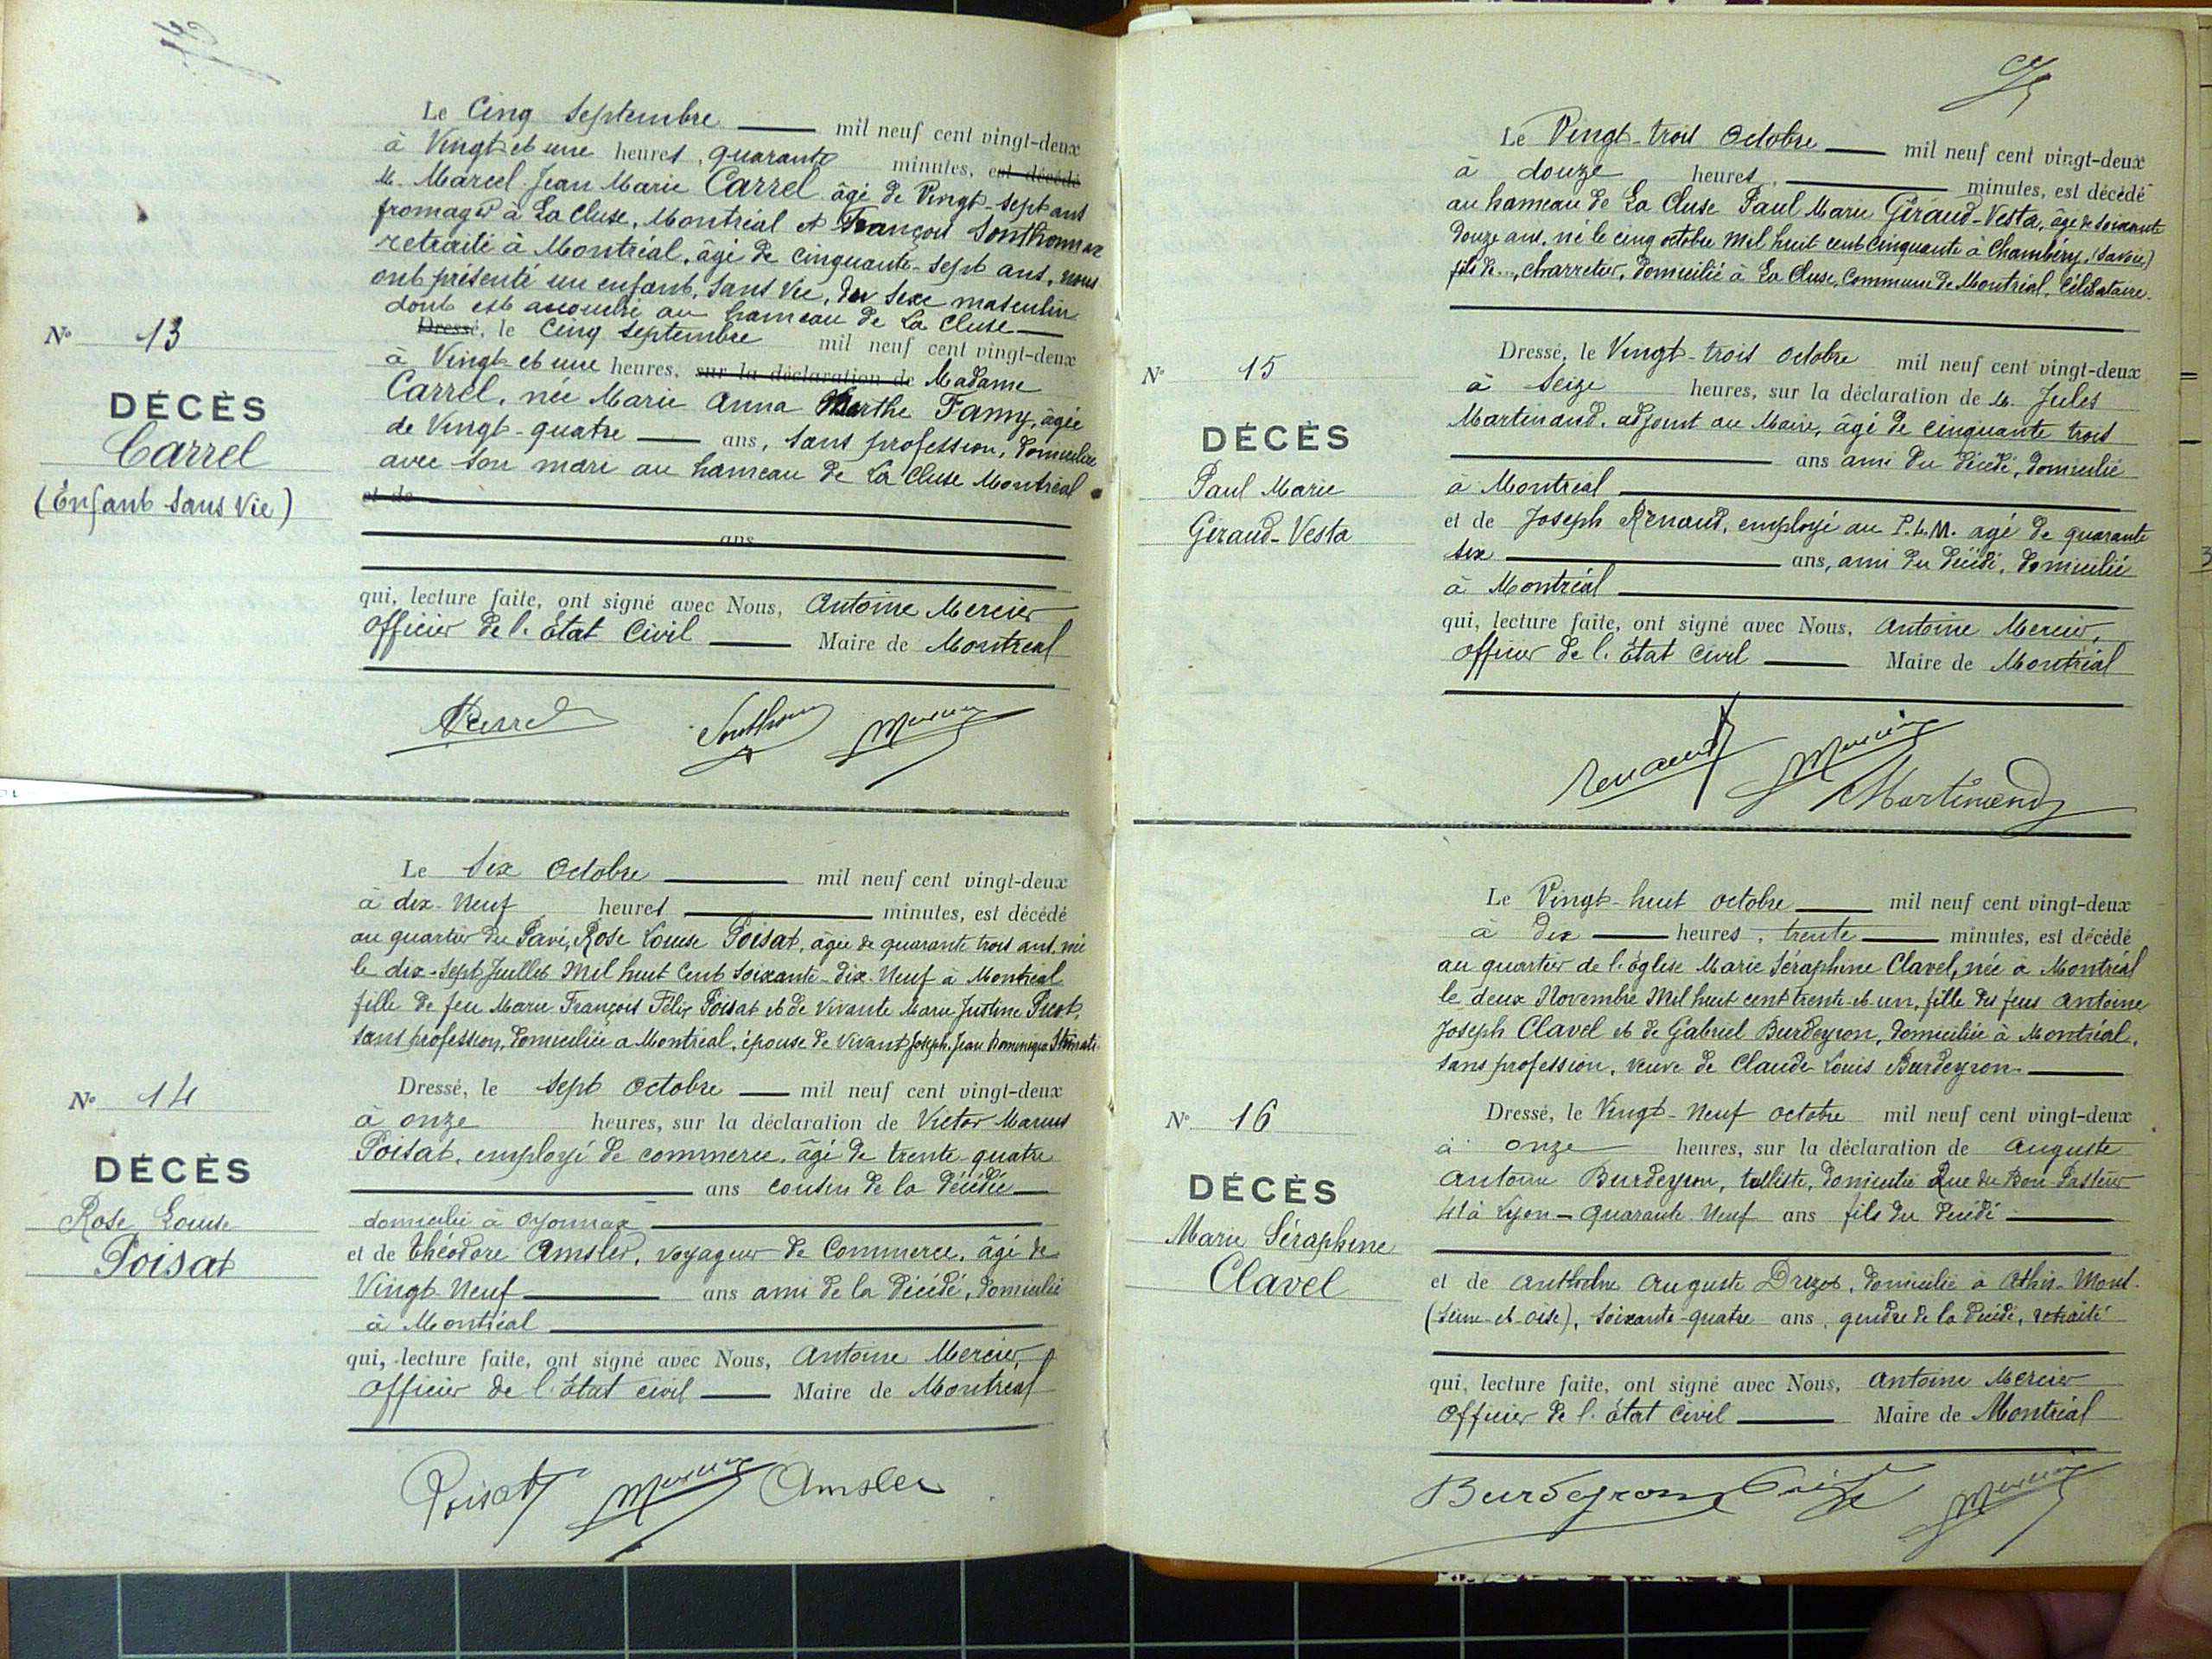 Le Cinq Septembre mil neuf cent vingt-deux
à Vingt et une heures, quarante minutes, est décédé
M. Marcel Jean Marie Carrel âgé de Vingt-sept ans
fromager à La Cluse, Montréal et François Sonthonnax
retraité à Montréal, âgé de cinquante-sept ans, nous
ont présenté un enfant, sans vie, du sexe masculin
dont est accouché au hameau de La Cluse
Dressé, le Cinq Septembre mil neuf cent vingt-deux
à Vingt-et une heures, sur la déclaration de Madame
Carrel, née Marie Anna Marthe Famy, âgée
de Vingt-quatre ans, sans profession, domiciliée
avec son mari au hameau de La Cluse Montréal
et de
ans
qui, lecture faite, ont signé avec Nous, Antoine Mercier
Officier de l'Etat Civil Maire de Montreal
N° 13
DÉCÈS
Carrel
(Enfant sans Vie)
Le Six Octobre mil neuf cent vingt-deux
à dix-Neuf heures minutes, est décédé
au quartier du Pavé, Rose Louise Poisat, âgée de quarante trois ans, née
le dix-sept Juillet Mil huit Cent soixante-dix-Neuf à Montréal
fille de feu Marie François Félix Poisat et de Vivante Marie Justine
sans profession, domiciliée à Montréal, épouse de Vivant Joseph Jean Dominique
N° 14
DÉCÈS
Rose Louise
Poisat
Dressé, le sept Octobre mil neuf cent vingt-deux
à onze heures, sur la déclaration de Victor Marius
Poisat, employé de commerce, âgé de trente quatre
ans cousin de la décédée
domicilié à Oyonnax
et de Théodore Amsler, voyageur de Commerce, âgé de
Vingt Neuf ans ami de la décédé, domicilié
à Montréal
qui, lecture faite, ont signé avec Nous, Antoine Mercier,
Officier de l'Etat civil Maire de Montréal
Poisat Mercier Amsler
Le Vingt-trois Octobre mil neuf cent vingt-deux
à douze heures, minutes, est décédé
au hameau de La Cluse Paul Marie Géraud-Vesta, âgé de soixante
douze ans, né le cinq octobre Mil huit cent cinquante à Chambéry, (Savoie)
fils de..., charretier, domicilié à La Cluse, Commune de Montréal, Célibataire.
N° 15
DÉCÈS
Paul Marie
Géraud-Vesta
Dressé, le Vingt-trois octobre mil neuf cent vingt-deux
à Seize heures, sur la déclaration de M. Jules
Martinand, adjoint au Maire, âgé de cinquante trois
ans ami du décédé, domicilié
à Montréal
et de Joseph Renaud, employé au P.L.M. agé de quarante
six ans, ami du décédé, domicilié
à Montréal
qui, lecture faite, ont signé avec Nous, Antoine Mercier,
Officier de l'Etat Civil Maire de Montréal
Renaud Mercier
Martinand
Le Vingt-huit octobre mil neuf cent vingt-deux
à dix heures, trente minutes, est décédé
au quartier de l'église Marie Séraphine Clavel, née à Montréal
le deux Novembre Mil huit cent trente-et-un, fille des feus Antoine
Joseph Clavel et de Gabriel Burdeyron, domiciliée à Montréal,
sans profession, veuve de Claude Louis Burdeyron.
N° 16
DÉCÈS
Marie Séraphine
Clavel
Dressé, le Vingt-Neuf octobre mil neuf cent vingt-deux
à onze heures, sur la déclaration de Auguste
Antoine Burdeyron, tulliste, domicilié Rue du Bon-Pasteur
41 à Lyon - Quarante-Neuf ans fils du décédé
et de Anthelme Auguste, domicilié à Athis-Mons
(Seine-et-Oise), soixante-quatre ans, gendre de la décédé, retraité
qui, lecture faite, ont signé avec Nous, Antoine Mercier
Officier de l'état Civil Maire de Montréal
Burdeyron Mercier